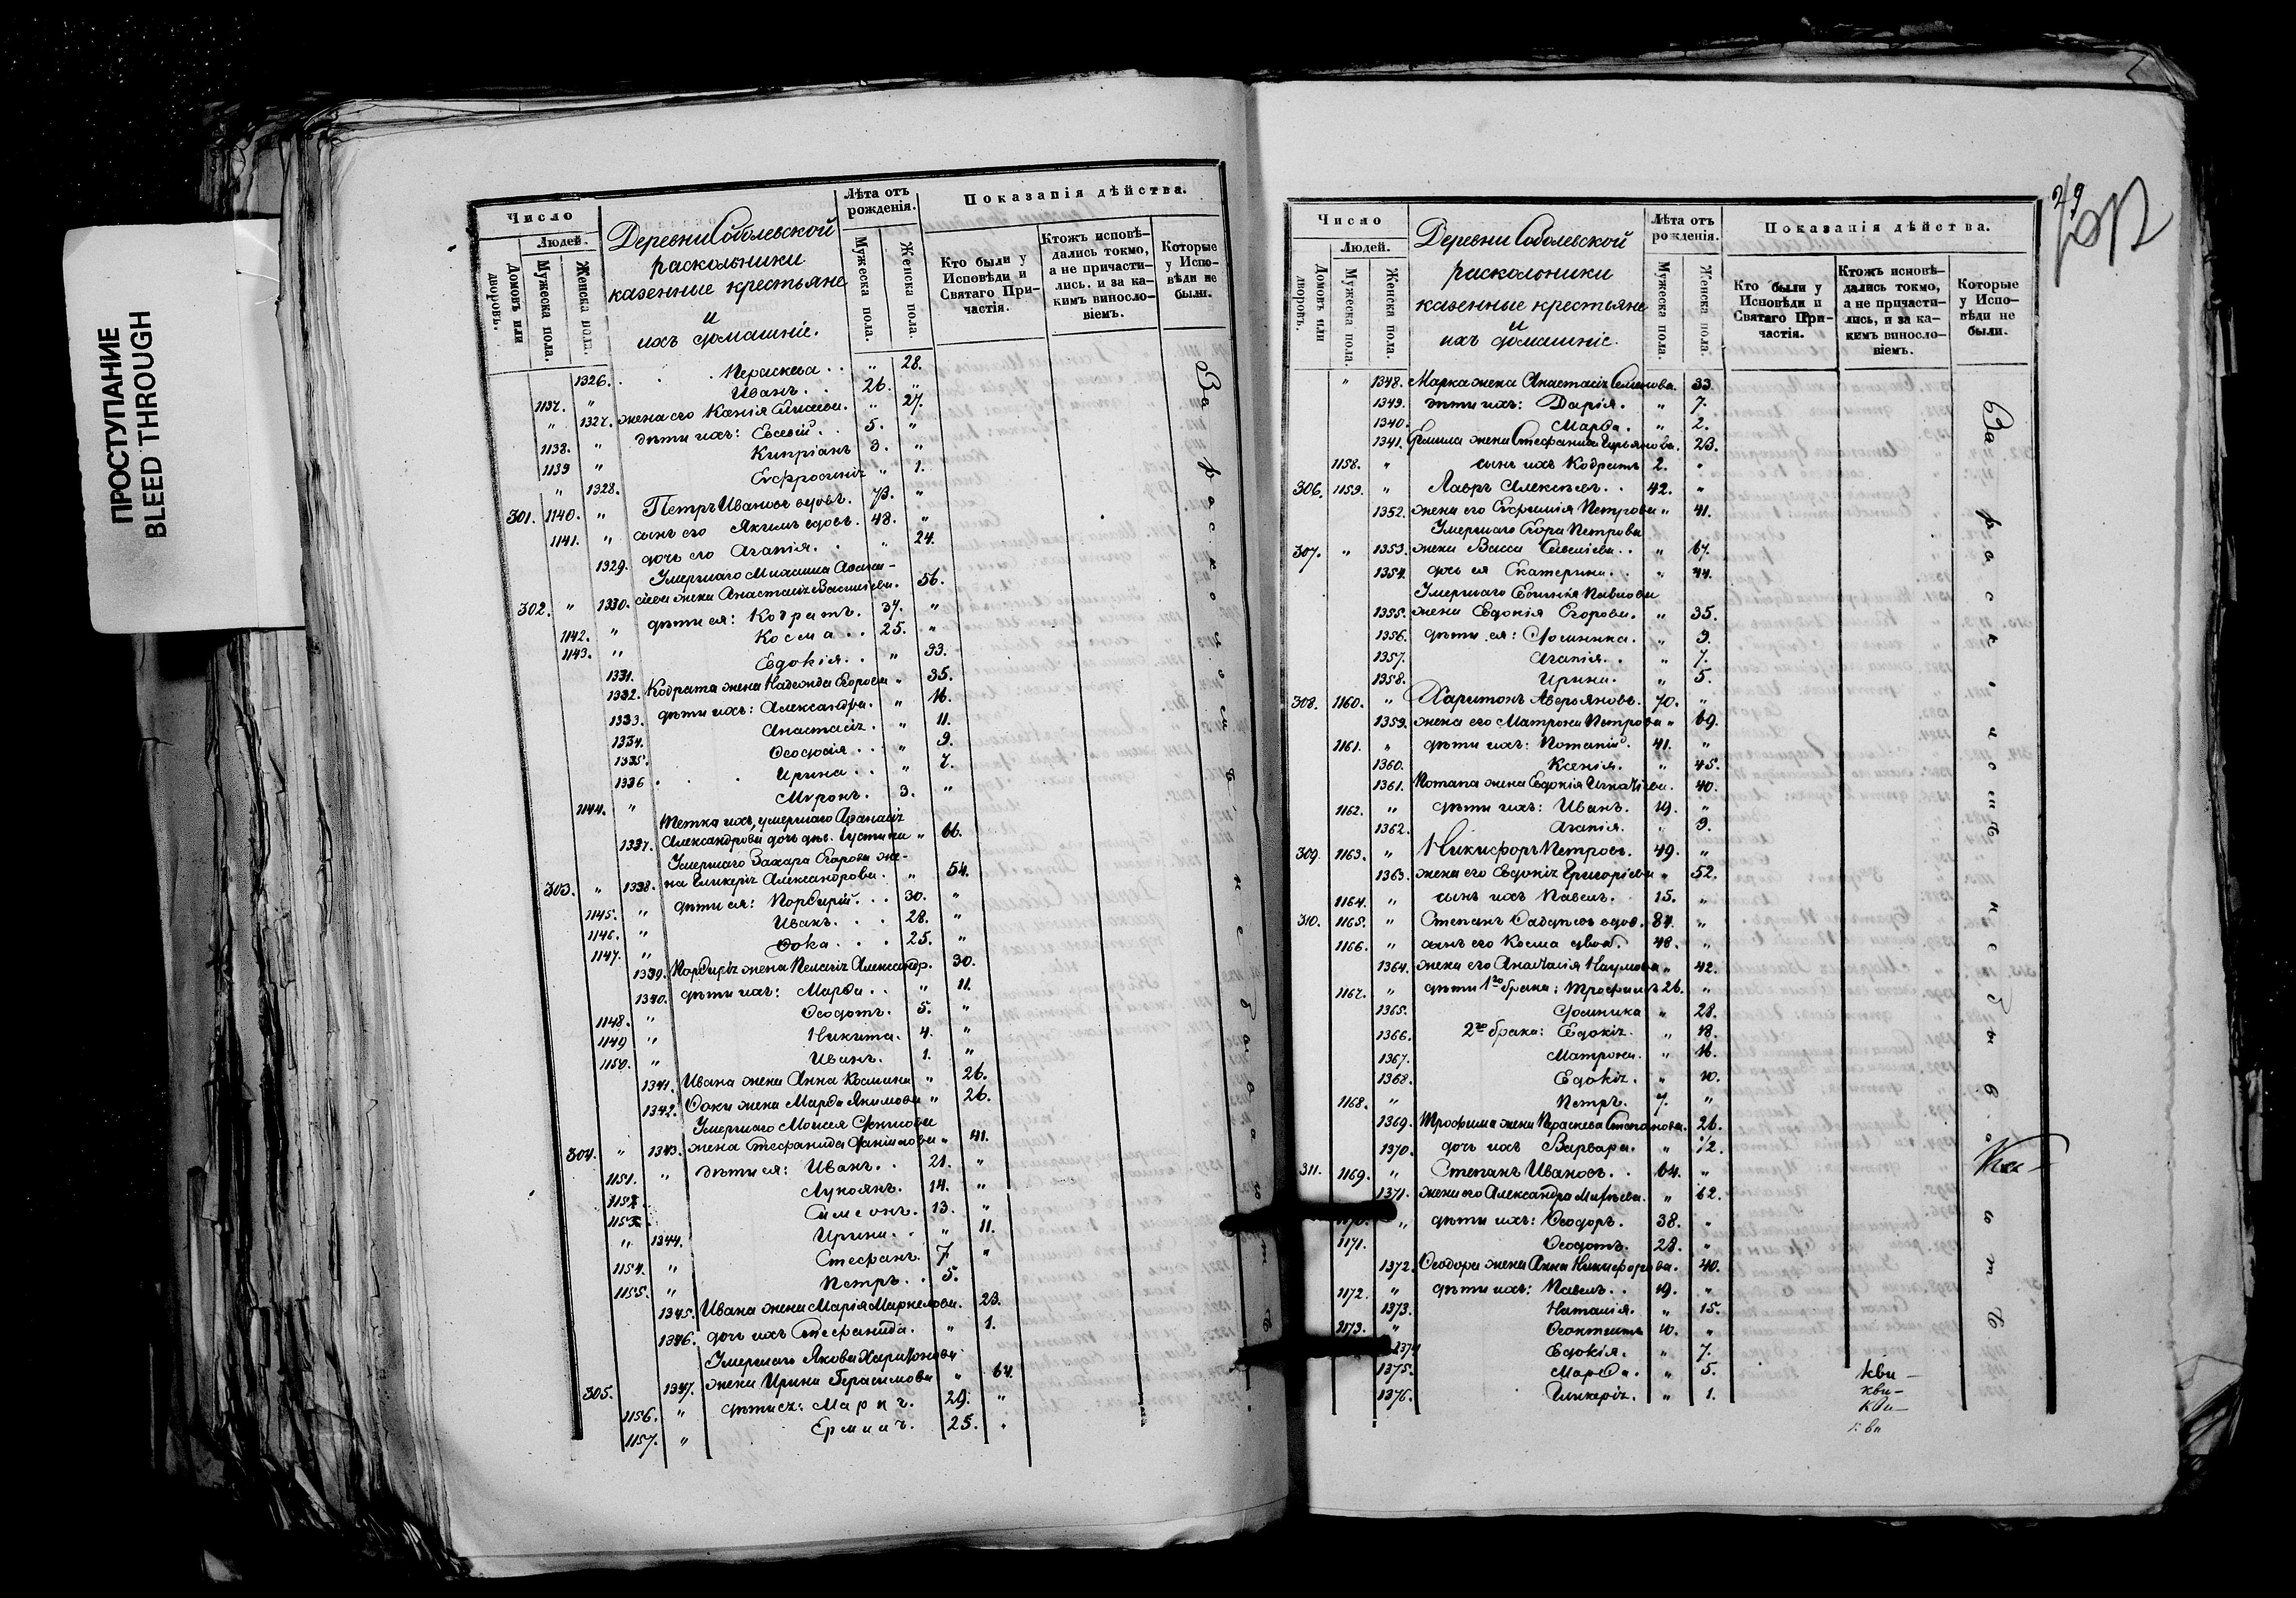 ПРОСТУПАНИЕ
BLEED THROUGH
Число
Людей.
Домовъ или дворовъ.
Мужеска пола.
Женска пола.
Деревни Соболевской
раскольники
казенные крестьяне
и
ихъ домашніе.
Лѣта отъ рожденія.
Мужеска пола.
Женска пола.
Показанія дѣйства.
Кто были у Исповѣди и Святаго Причастія.
Ктожъ исповѣдались токмо, а не причастились. и за какимъ винословіемъ.
Которые у Исповѣди не были.
1326. Параскева . . " 28.
1137. " Иванъ . 26. "
" 1327. жена его Ксенія " 27.
1138. " дѣти ихъ: Евсевій . 5. "
1139 " Кипріанъ 3. "
" 1328. Евфросинія " 1.
301. 1140. " Петръ Ивановъ вдовъ. 73. "
1141. " сынъ его Якимъ вдовъ. 48. "
1329. дочь его Агапія. . " 24.
Умершаго Михаила Афана-
302. " 1330. сіева жена Анастасія Василіева. 56.
1142. " дѣти ея: Кодратъ. 37. "
1143. " Косма . . 25. "
1331. Евдокія. . " 33.
1332. Кодрата жена Надежда Егорова " 35.
1333. дѣти ихъ: Александра. " 16.
1334. Анастасія. " 11.
1335. Ѳеодосія . . " 9.
1336 . . Ирина . . " 7.
1144. " Миронъ. 3. "
Тетка ихъ, умершаго Афанасія
1337. Александрова дочь дѣв. Іустина " 66.
Умершаго Захара Егорова же-
303. " 1338. на Гликерія Александрова. " 54.
1145. " дѣти ея: Порфирій. . . 30. "
1146. " Иванъ. . . 28. "
1147. " Фока . . . 25. "
1339. Порфирія жена Пелагія Александр. 30.
1340. дѣти ихъ: Марфа . . " 11.
1148. " Ѳеодотъ. 5. "
1149 " Никита. 4. "
1150. " Иванъ. 1. "
1341. Ивана жена Анна Космина " 26.
1342. Фоки жена Марфа Якимова " 26.
Умершаго Моисея
304. " 1343. жена Стефанида " 41.
1151. " дѣти ея: Иванъ. . 21. "
1152. Лукоянъ. 14. "
1153. Симеонъ. 13. "
" 1344. Ирина. . " 11.
1154. " Стефанъ. 7 "
1155. " Петръ. . 5.
1345. Ивана жена Марія Маркелова. 23.
1346. дочь ихъ Стефанида. " 1.
Умершаго Якова Харитонова
305. 1347. жена Ирина Герасимова " 64.
1156. " дѣти ея: Маркъ. 29. "
1157. " Ермилъ. 25. "
За расколомъ не бываютъ.
79
Число
Людей.
Домовъ или дворовъ.
Мужеска пола
Женска пола.
Деревни Соболевской
раскольники
казенные крестьяне
и
ихъ домашніе.
Лѣта отъ рожденія.
Мужеска пола.
Женска пола.
Показанія дѣйства.
Кто были у Исповѣди и Святаго Причастія.
Ктожъ исповѣдались токмо, а не причастились, и за какимъ винословіемъ.
Которые у Исповѣди не были.
" 1348. Марка жена Анастасія Семенова. 33.
1349. дѣти ихъ: Дарія. " 7.
1340. Марфа. " 2.
1341. Ермила жена Стефанида 23.
1158. " сынъ ихъ Кодратъ 2. "
306. 1159. " Лавръ Алексѣевъ. . 42. "
1352. жена его Евфимія Петрова " 41.
Умершаго Егора Петрова
307. " 1353. жена Васса Савеліева. . " 67.
1354. дочь ея Екатерина. . " 44.
Умершаго Павлова
1355. жена Евдокія Егорова. " 35.
1356. дѣти ея: Домника. " 9.
1357. Агапія. . " 7.
1358. Ирина. " 5.
308. 1160. " Харитонъ Аверояновъ. 70. "
1359. жена его Матрона Петрова " 69.
1161. " дѣти ихъ: Потапій. 41. "
1360. Ксенія. " 45.
1361. Потапа жена Евдокія Игнатіева. 40.
1162. " дѣти ихъ: Иванъ. 19. "
1362. Агапія. " 9.
309. 1163. " Никифоръ Петровъ. 49. "
1363. жена его Евдокія Григоріева " 52.
1164. " сынъ ихъ Павелъ. 15. "
310. 1165. " Степанъ вдов. 84. "
1166. " сынъ его Косма двоб. 48. "
1364. жена его Анастасія Наумова " 42.
1167. " дѣти 1го брака: Трофимъ 26. "
1365. Домника " 28.
1366. 2го брака: Евдокія. " 18.
1367. Матрона. " 16.
1368. Евдокія. " 10.
1168. " Петръ. 7. "
1369. Трофима жена Параскева Степанова. 26.
1370. дочь ихъ Варвара. " 1/2.
311. 1169. " Степанъ Ивановъ. . 64. "
1371. жена его Александра " 62.
1170. " дѣти ихъ: Ѳеодоръ. 38. "
1171. Ѳеодотъ. 28. "
1372. Ѳеодора жена Анна Никифорова. 40.
1172. " дѣти ихъ: Павелъ. . 19. "
1373. Наталія. " 15.
1173. " Ѳеоктистъ 10. "
1374 Евдокія. " 7.
1375. Марфа. " 5.
1376. Гликерія. " 1.
За расколомъ не бываютъ
кви-
кви-
кви-